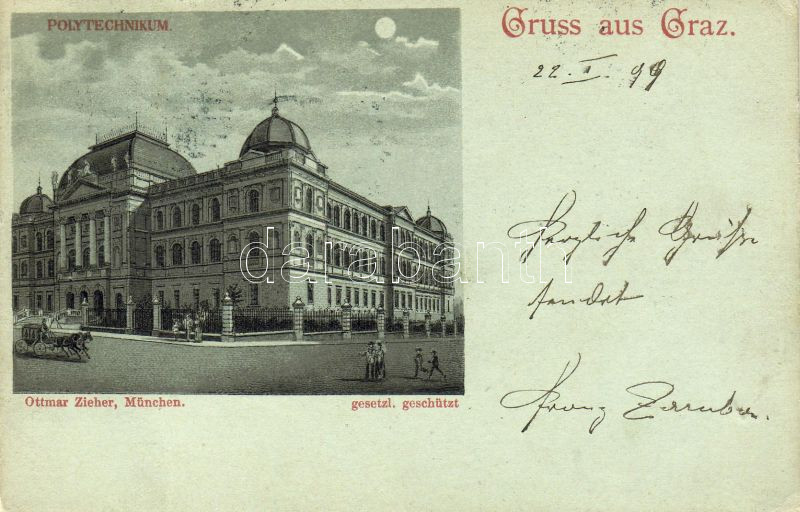 POLYTECHNIKUM.
Gruss aus Graz.
22. I. 99
Herzliche Grüße
sendet
Franz
Ottmar Zieher, München.
gesetzl. geschützt
darabanth